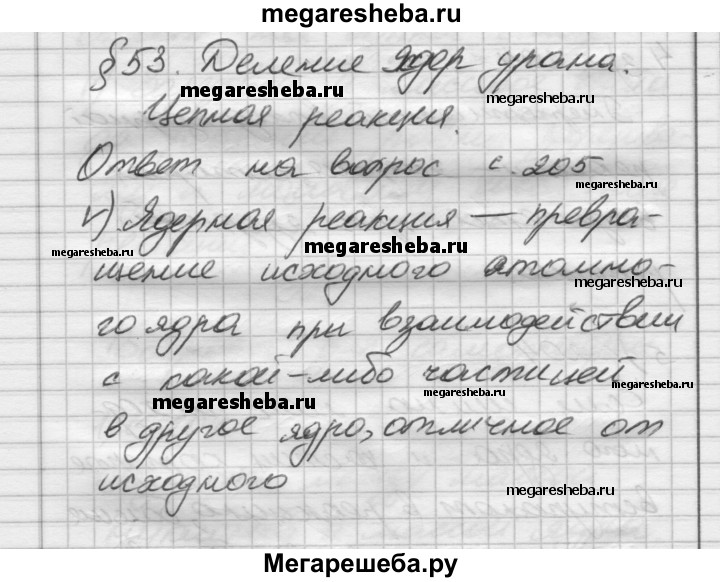 megaresheba.ru
§ 53. Деление ядер урана.
megaresheba.ru megaresheba.ru
Цепная реакция.
Ответ на вопрос с. 205
megaresheba.ru
1) Ядерная реакция — превра-
megaresheba.ru megaresheba.ru megaresheba.ru
щение исходного атомно-
megaresheba.ru
го ядра при взаимодействии
с какой-либо частицей
megaresheba.ru megaresheba.ru
в другое ядро, отличное от
исходного
megaresheba.ru
Мегарешеба.ру